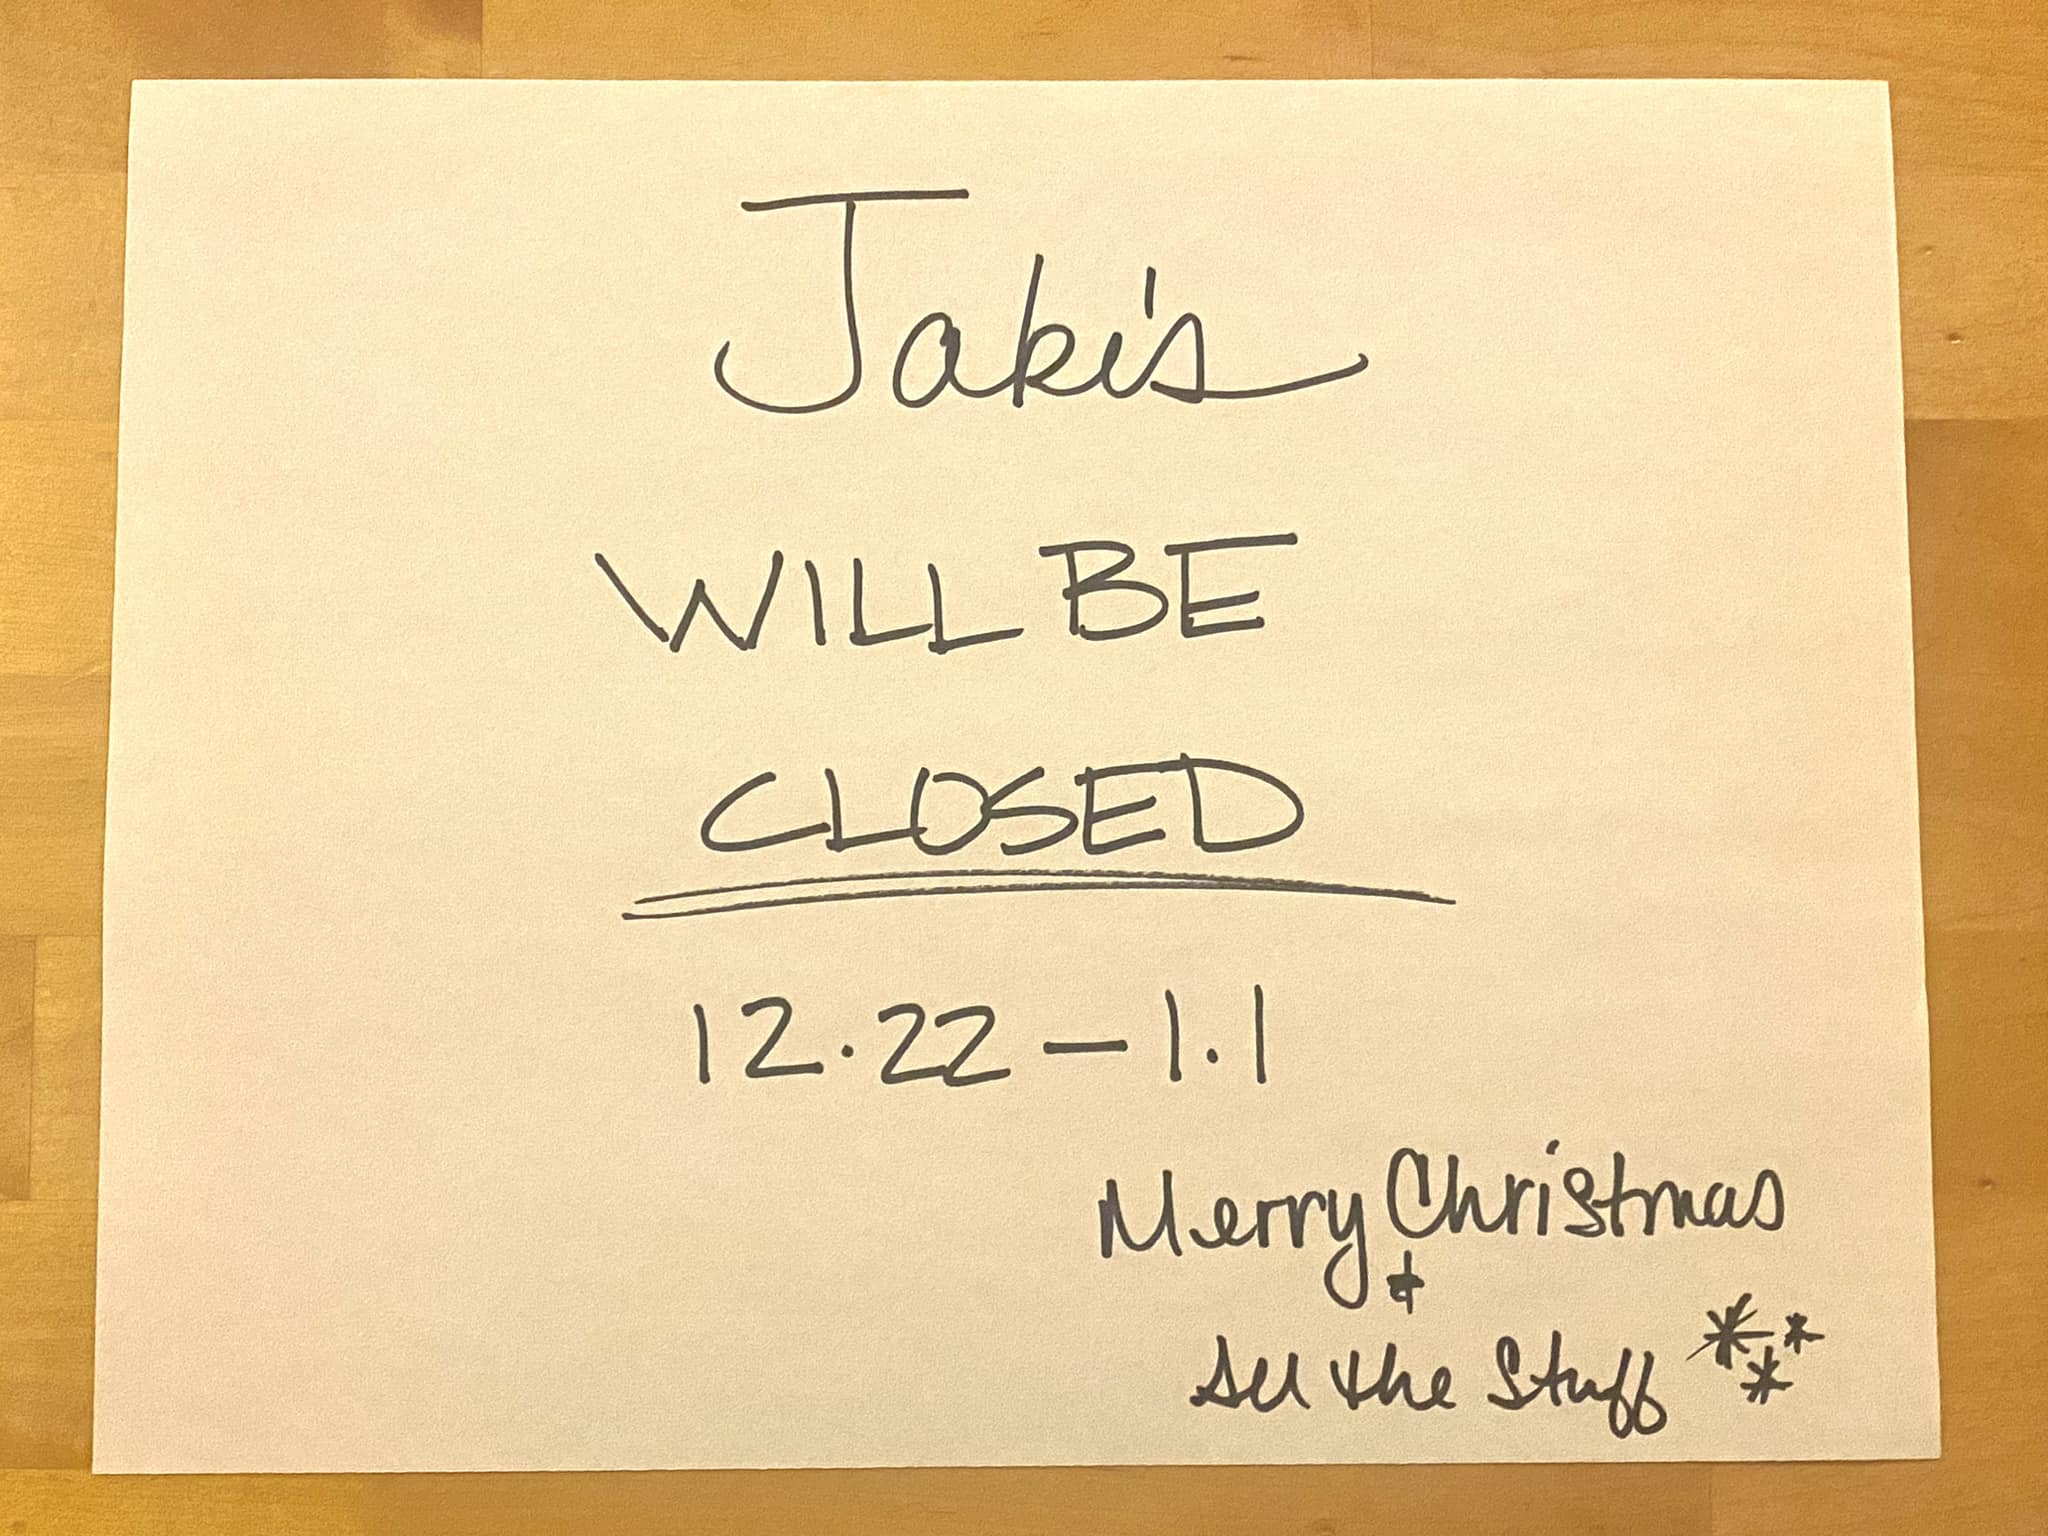 Jaki's
WILL BE
CLOSED
12.22 – 1.1
Merry Christmas
&
All the Stuff